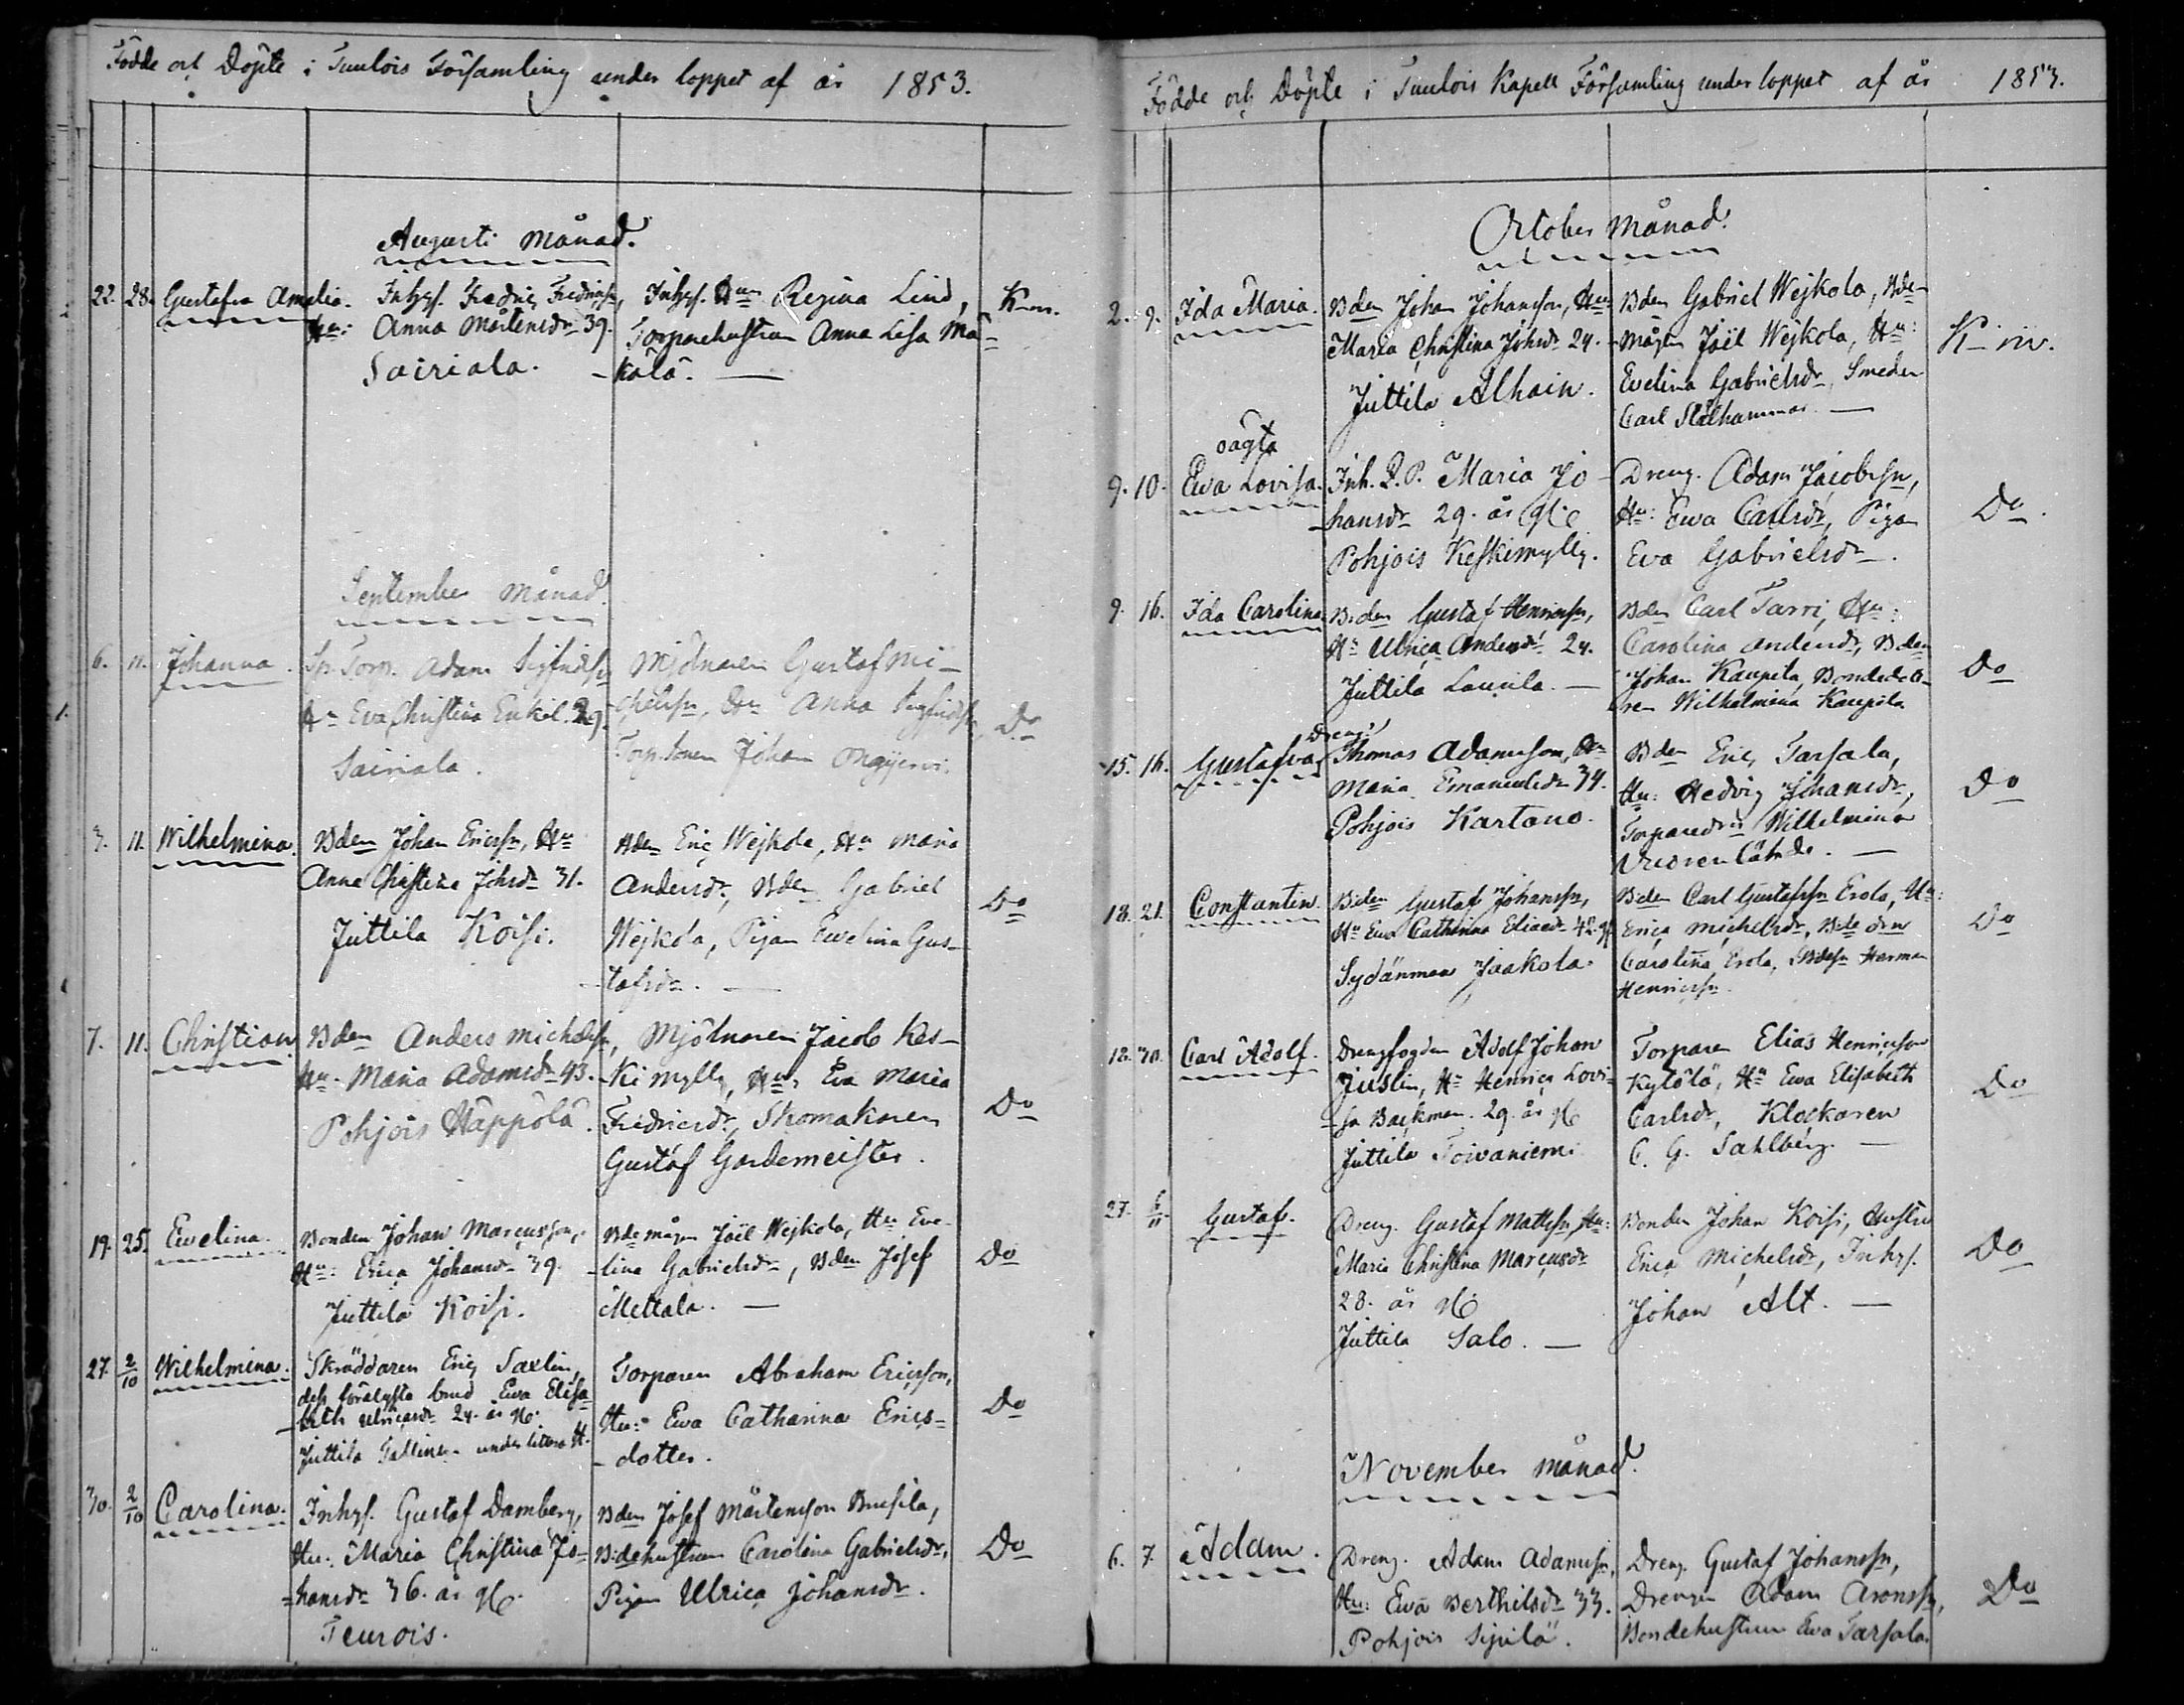 Födde och Döpte i Tuulois Församling under loppet af år 1853.
Augusti Månad.
22. 28. Gustafva Amalia.
Inhys. Fredric Fredricsn,
Hu: Anna Mårtensdr 39.
Sairiala.
Inhys. Hun Regina Lind,
Torparehustrun Anna Lisa Mä-
-kälä. —
September Månad.
6. 11. Johanna.
Sp. Torp. Adam Sigfridssn
Hu Eva Christina Enkil. 29.
Sairiala.
Mjölnaren Gustaf Mi-
chelssn, Hu Anna Sigfridsdr,
Torp.sonen Johan
Do
3. 11. Wilhelmina.
Bden Johan Ericssn, Hu
Anna Christina Johsdr 31.
Juttila Koisi.
Bden Eric Wejkola, Hu Maria
Andersdr, Bden Gabriel
Wejkola, Pigan Evelina Gus-
-tafsdr. —
Do
7. 11. Christian.
Bden Anders Michelssn,
Hu. Maria Adamsdr 43.
Pohjois Häppölä.
Mjölnaren Jacob Kes-
-kimylly, Hu: Eva Maria
Fredricsdr, Skomakaren
Gustaf Gardemeister.
Do
19. 25. Evelina.
Bonden Johan Marcusson,
Hu: Erica Johansdr 39.
Juttila Koisi.
Bdemågen Joël Wejkola, Hu Eve-
-lina Gabrielsdr, Bden Josef
Mettala. —
Do
27. 2/10 Wilhelmina.
Skräddaren Eric Saxlin,
dess förelysta brud Ewa Elisa-
-beth Ulricasdr 24. år
Juttila under littera H.
Torparen Abraham Ericsson,
Hu: Ewa Catharina Erics-
-dotter.
Do
30. 2/10 Carolina.
Inhys. Gustaf Damberg,
Hu: Maria Christina Jo-
=hansdr 36. år
Teurois.
Bden Josef Mårtensson Brusila,
Bdehustrun Carolina Gabrielsdr,
Pigan Ulrica Johansdr.
Do
Födde och Döpte i Tuulois Kapell Församling under loppet af år 1853.
October Månad.
2. 9. Ida Maria.
Bden Johan Johansson, Hu
Maria Christina Johsdr 24.
Juttila Alhain.
Bden Gabriel Wejkola, Bde-
mågen Joël Wejkola, Hu:
Evelina Gabrielsdr, Smeden
Carl Stålhammar. —
oägta
9. 10. Ewa Lovisa.
Inh. Q.P. Maria Jo-
-hansdr 29. år
Pohjois Keskimylly.
Dreng. Adam Jacobssn,
Hu: Ewa Carlsdr, Pigan
Eva Gabrielsdr.
Do.
9. 16. Ida Carolina.
Bden Gustaf Henricssn,
Hu Ulrica Andersdr. 24.
Juttila Laurila. —
Bden Carl Tarri, Hu:
Carolina Andersdr, Bden
Johan Kaupila, Bondedott-
ren Wilhelmina Kaupila
Do
15. 16. Gustafva
Dreng.
Thomas Adamsson, Hu
Maria Emanuelsdr 34.
Pohjois Kartano.
Bden Eric Tarsala,
Hu: Hedvig Johansdr,
Torparedr Wilhelmina
Vuorenlähde. —
Do
18. 21. Constantin.
Bden Gustaf Johanssn,
Hu Ewa Catharina Eliaedr 42.
Sydänmaa Jaakola.
Bden Carl Gustafssn Erola, Hu:
Erica Michelsdr,
Carolina Erola, Bdesn Herman
Henricssn.
Do
18. 30. Carl Adolf.
Drengfogden Adolf Johan
Juslin, Hu Henrica Lovi-
-sa Backman. 29. år
Juttila Toivaniemi
Torparen Elias Henricsson
Kylölä, Hu Ewa Elisabeth
Carlsdr, Klockaren
C. G. Sahlberg. —
Do
27. 6/11 Gustaf.
Dreng. Gustaf Mattssn, Hu:
Maria Christina Marcusdr
28. år
Juttila Salo. —
Bonden Johan Koisi, Hustru
Erica Michelsdr, Inhys.
Johan Alt. —
Do
November Månad.
6. 7. Adam.
Dreng. Adam Adamssn,
Hu: Ewa Berthilsdr 33.
Pohjois Sipilä.
Dreng. Gustaf Johanssn,
Drengen Adam Aronssn,
Bondehustrun Ewa Tarsala.
Do